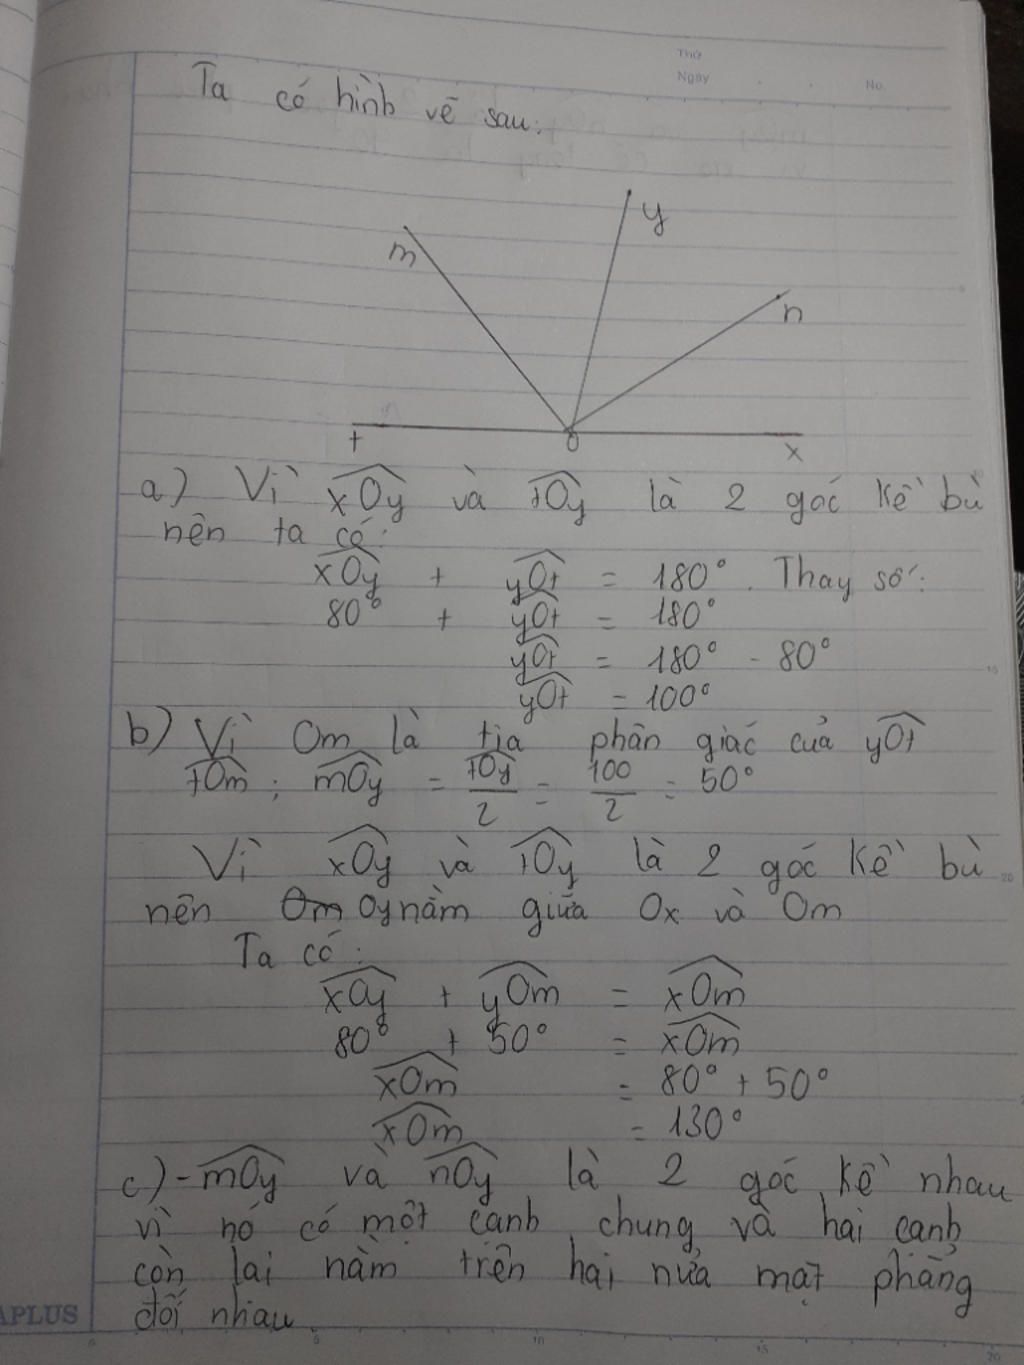 Thứ
Ngày No.
Ta có hình vẽ sau:
y
m
n
t O x
a) Vì xOy và tOy là 2 góc kề bù
nên ta có:
xOy + yOt = 180° . Thay số:
80° + yOt = 180°
yOt = 180° - 80°
yOt = 100°
b) Vì Om là tia phân giác của yOt
tOm ; mOy = tOy/2 = 100/2 = 50°
Vì xOy và tOy là 2 góc kề bù
nên Om Oy nằm giữa Ox và Om
Ta có:
xOy + yOm = xOm
80° + 50° = xOm
xOm = 80° + 50°
xOm = 130°
c) - mOy và nOy là 2 góc kề nhau
vì nó có một cạnh chung và hai cạnh
còn lại nằm trên hai nửa mặt phẳng
đối nhau
APLUS